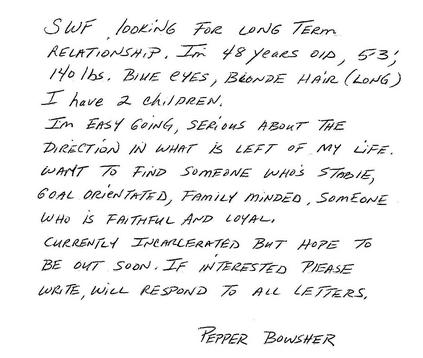 SWF looking for long term
relationship. I'm 48 years old, 5-3,
140 lbs. Blue eyes, Blonde hair (long)
I have 2 children.
I'm easy going, serious about the
direction in what is left of my life.
Want to find someone who's stable,
goal orientated, family minded. Someone
who is faithful and loyal.
Currently incarcerated but hope to
be out soon. If interested please
write, will respond to all letters.
Pepper Bowsher